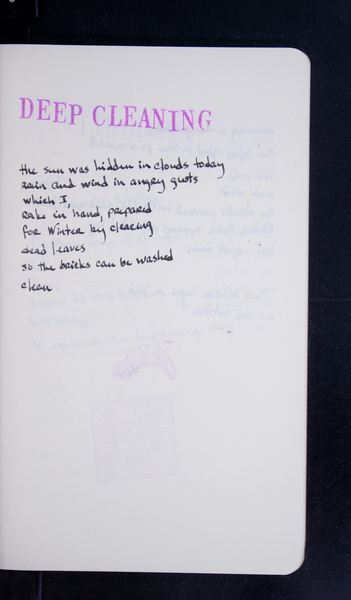 DEEP CLEANING
the sun was hidden in clouds today
rain and wind in angry gusts
which I,
rake in hand, prepared
for Winter by clearing
dead leaves
so the bricks can be washed
clean